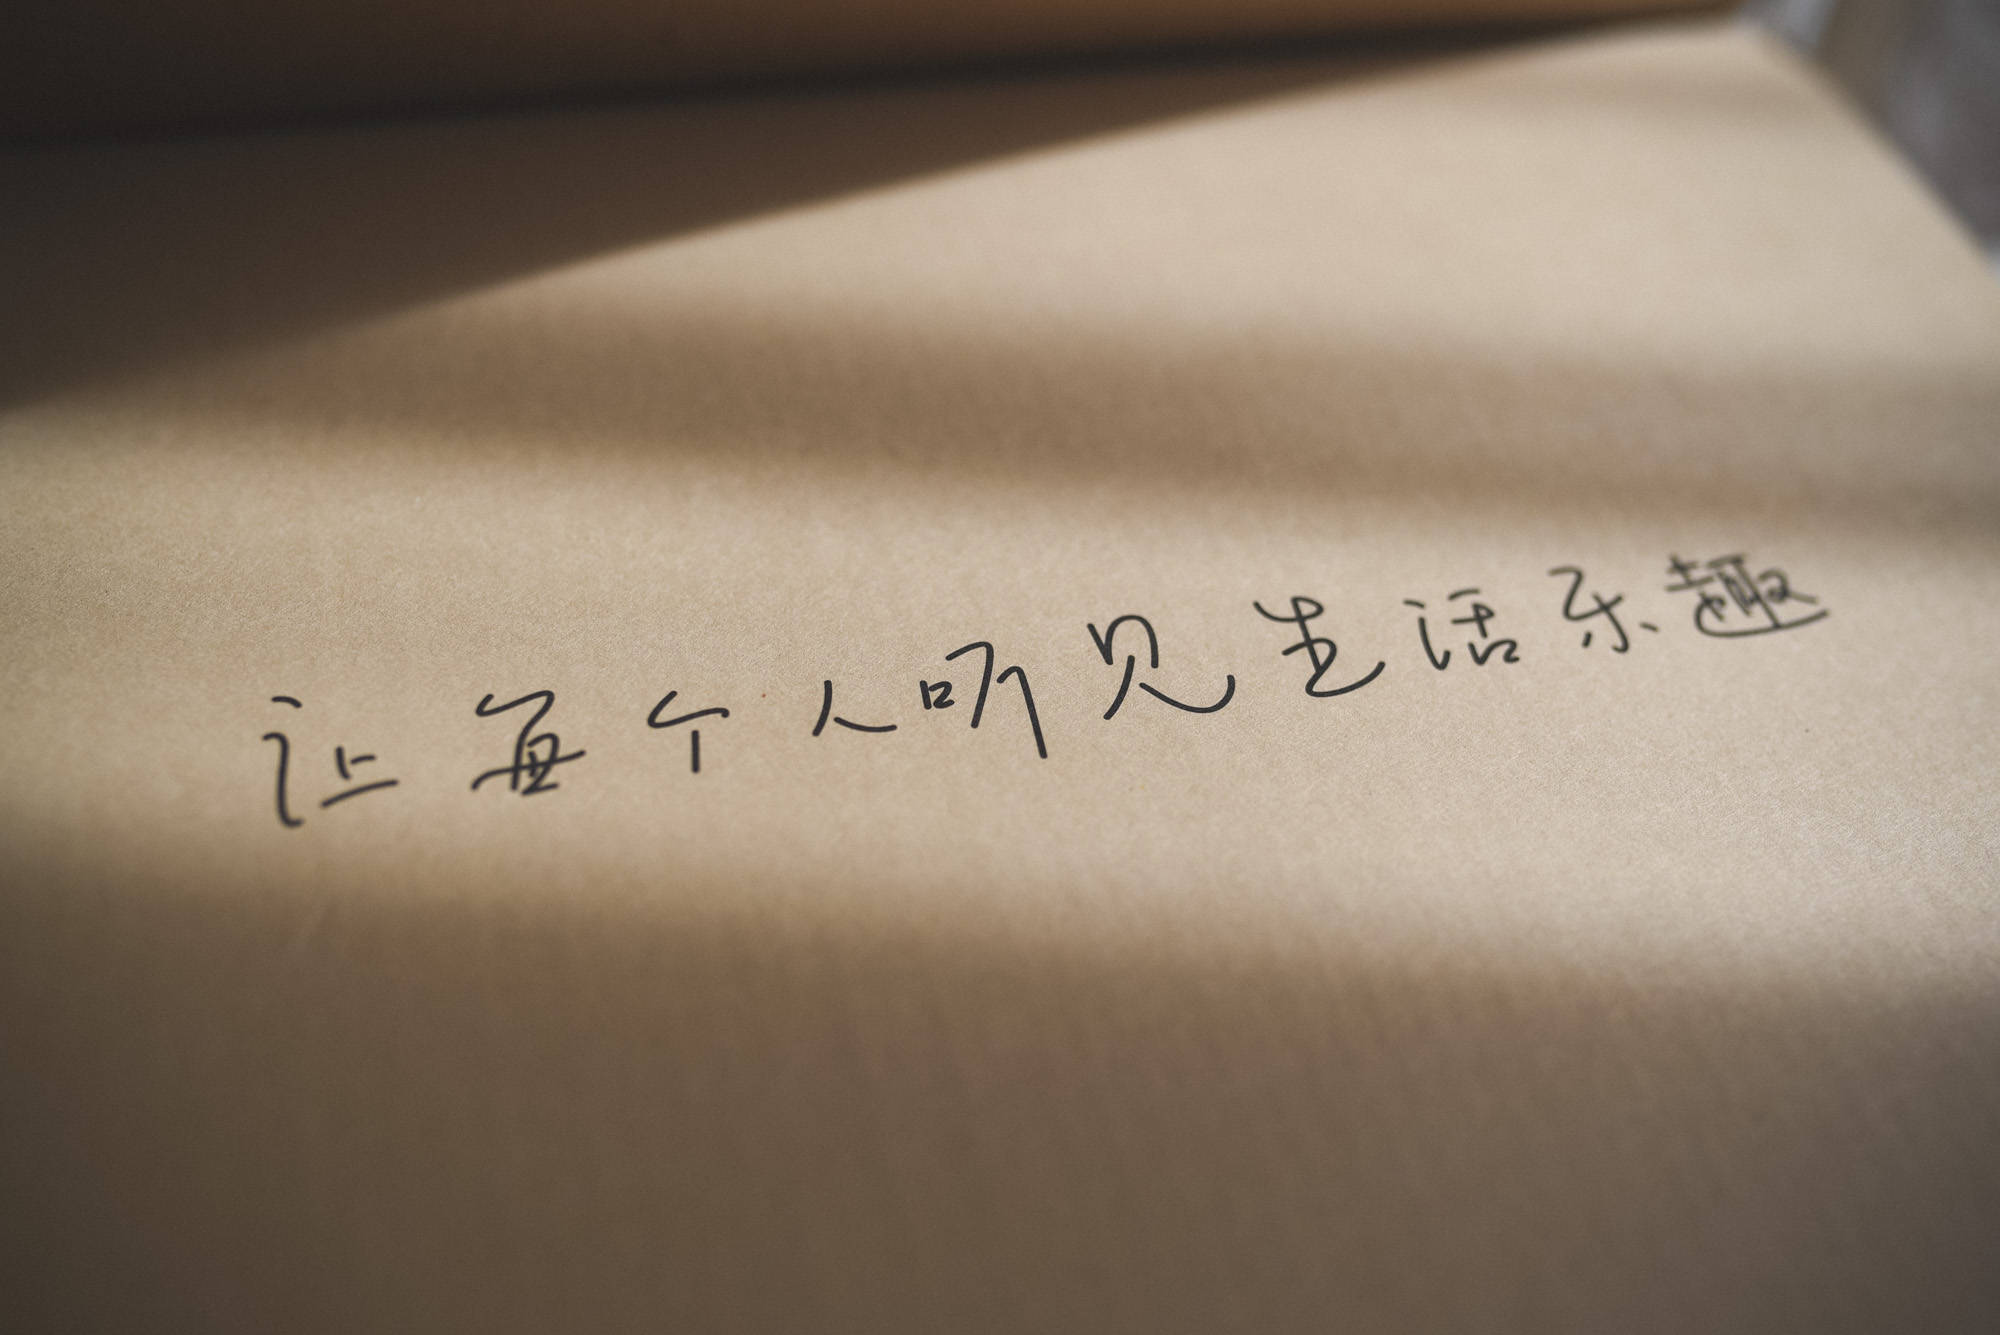 让每个人听见生活乐趣